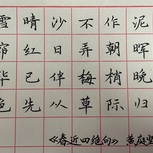 雪晴沙不作泥
帘红日弄朝晖
华已伴梅梢晚
色先从草际归
《春近四绝句》 黄庭坚